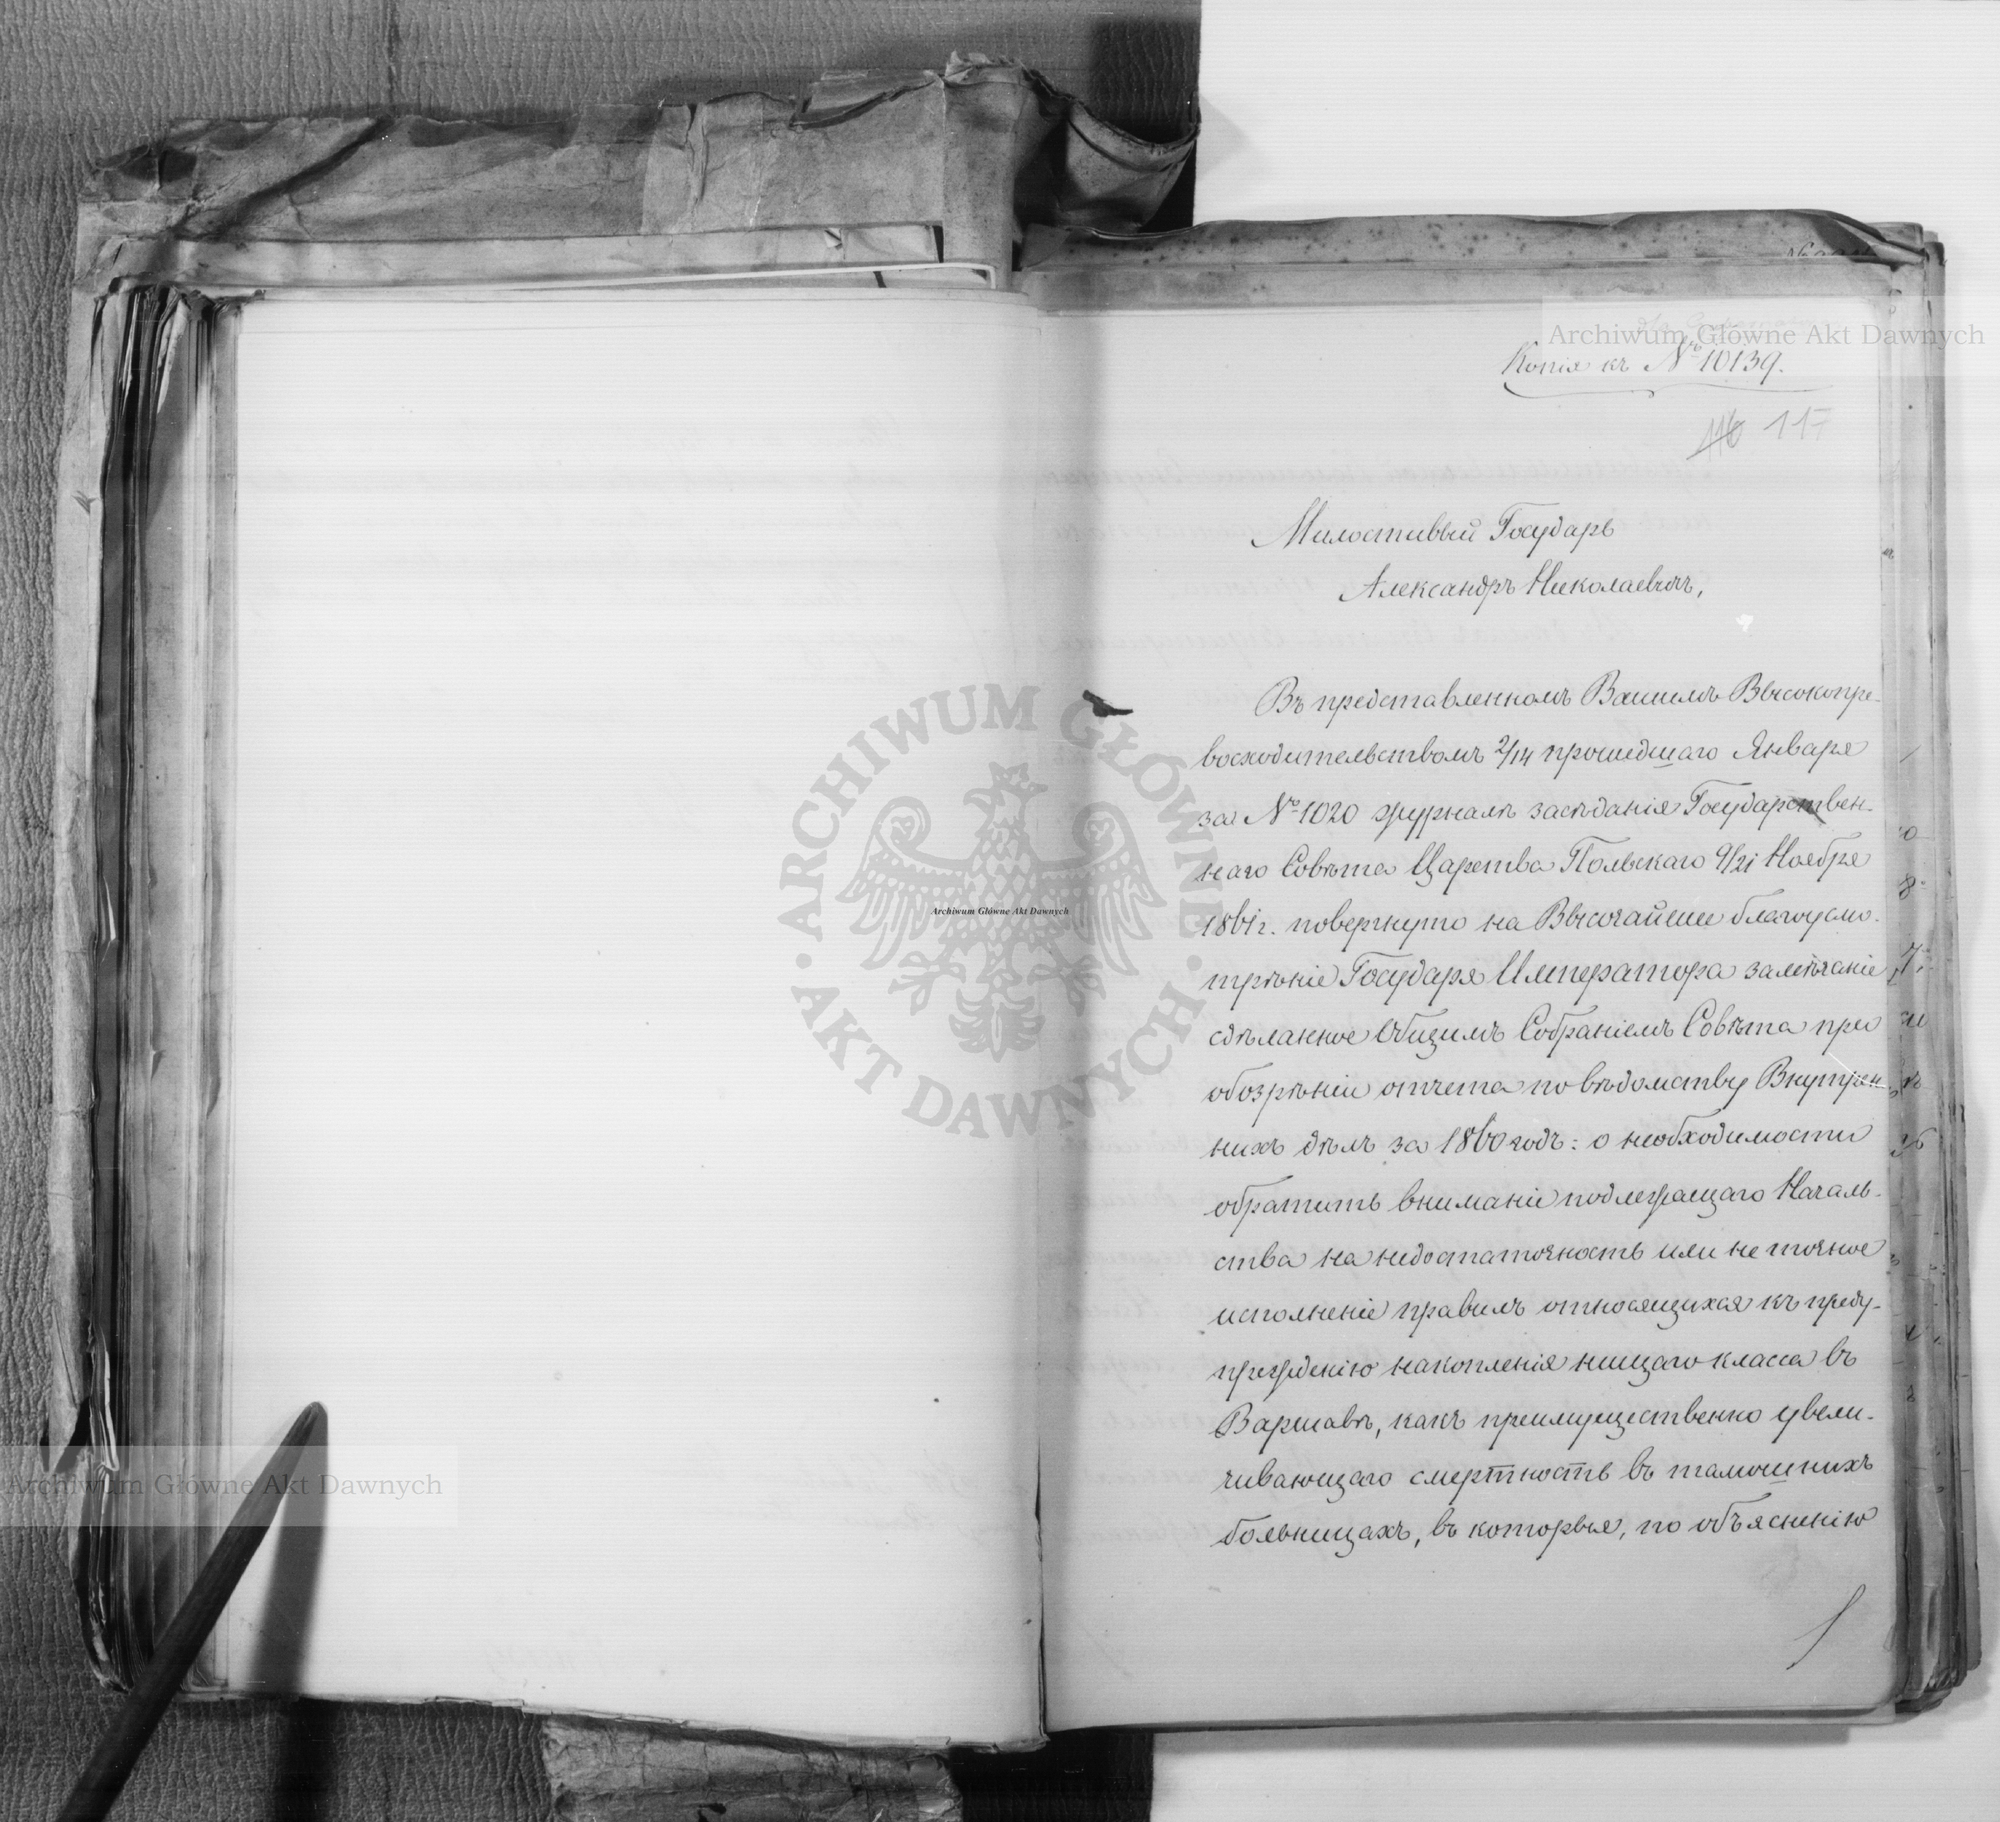 Копія къ № 10139.
116 117
Милостивый Государь
Александръ Николаевичъ,
Въ представленномъ Вашимъ Высокопре-
восходительствомъ 2/14 прошедшаго Января
за № 1020 журналѣ засѣданія Государствен-
наго Совѣта Царства Польскаго 9/21 Ноября
1861 г. повергнуто на Высочайшее благоусмо-
трѣніе Государя Императора замѣчаніе
сдѣланное Общимъ Собраніемъ Совѣта при
обозрѣніи отчета по вѣдомству Внутрен-
нихъ дѣлъ за 1860 годъ: о необходимости
обратить вниманіе подлежащаго Началь-
ства на недостаточность или не точное
исполненіе правилъ относящихся къ преду-
прежденію накопленія нищаго класса въ
Варшавѣ, какъ преимущественно увели-
чивающаго смертность въ тамошнихъ
больницахъ, въ которыя, по объясненію
Archiwum Główne Akt Dawnych
ARCHIWUM GŁÓWNE · AKT DAWNYCH ·
Archiwum Główne Akt Dawnych
Archiwum Główne Akt Dawnych